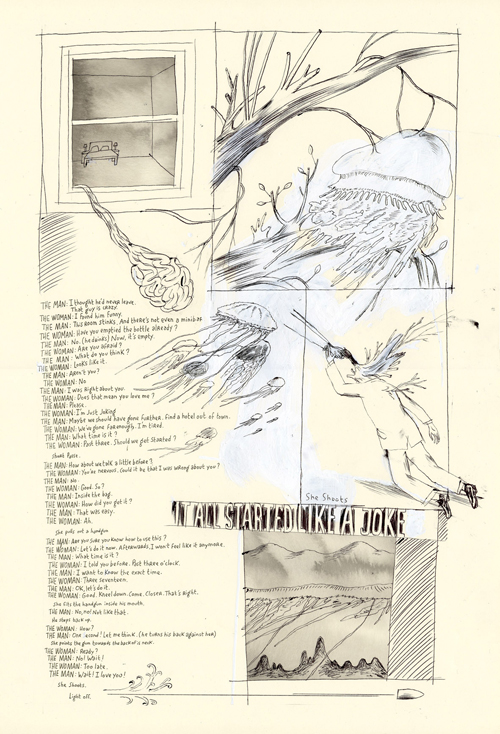 THE MAN: I thought he'd never leave.
That guy is crazy.
THE WOMAN: I found him funny.
THE MAN: This room stinks. And there's not even a minibar
THE WOMAN: Have you emptied the bottle already?
THE MAN: No. (he drinks) Now, it's empty.
THE WOMAN: Are you afraid?
THE MAN: What do you think?
THE WOMAN: Looks like it.
THE MAN: Aren't you?
THE WOMAN: No
THE MAN: I was right about you.
THE WOMAN: Does that mean you love me?
THE MAN: Please.
THE WOMAN: I'm Just Joking
THE MAN: Maybe we should have gone further. Find a hotel out of town.
THE WOMAN: We've gone far enough. I'm tired.
THE MAN: What time is it?
THE WOMAN: Past three. Should we get started?
Short Pause.
THE MAN: How about we talk a little before?
THE WOMAN: You're nervous. Could it be that I was wrong about you?
THE MAN: No.
THE WOMAN: Good. So?
THE MAN: Inside the bag.
THE WOMAN: How did you get it?
THE MAN: That was easy.
THE WOMAN: Ah.
She pulls out a handgun
THE MAN: Are you sure you know how to use this?
THE WOMAN: Let's do it now. Afterwards, I won't feel like it anymore.
THE MAN: What time is it?
THE WOMAN: I told you before. Past three o'clock.
THE MAN: I want to know the exact time.
THE WOMAN: Three seventeen.
THE MAN: OK, let's do it.
THE WOMAN: Good. Kneel down. Come. Closer. That's right.
She fits the handgun inside his mouth.
THE MAN: No, no! Not like that.
He steps back up.
THE WOMAN: How?
THE MAN: One second! Let me think. (he turns his back against her)
She points the gun towards the back of his neck.
THE WOMAN: Ready?
THE MAN: No! Wait!
THE WOMAN: Too late.
THE MAN: Wait! I love you!
She Shoots.
Light off.
She Shoots
IT ALL STARTED LIKE A JOKE